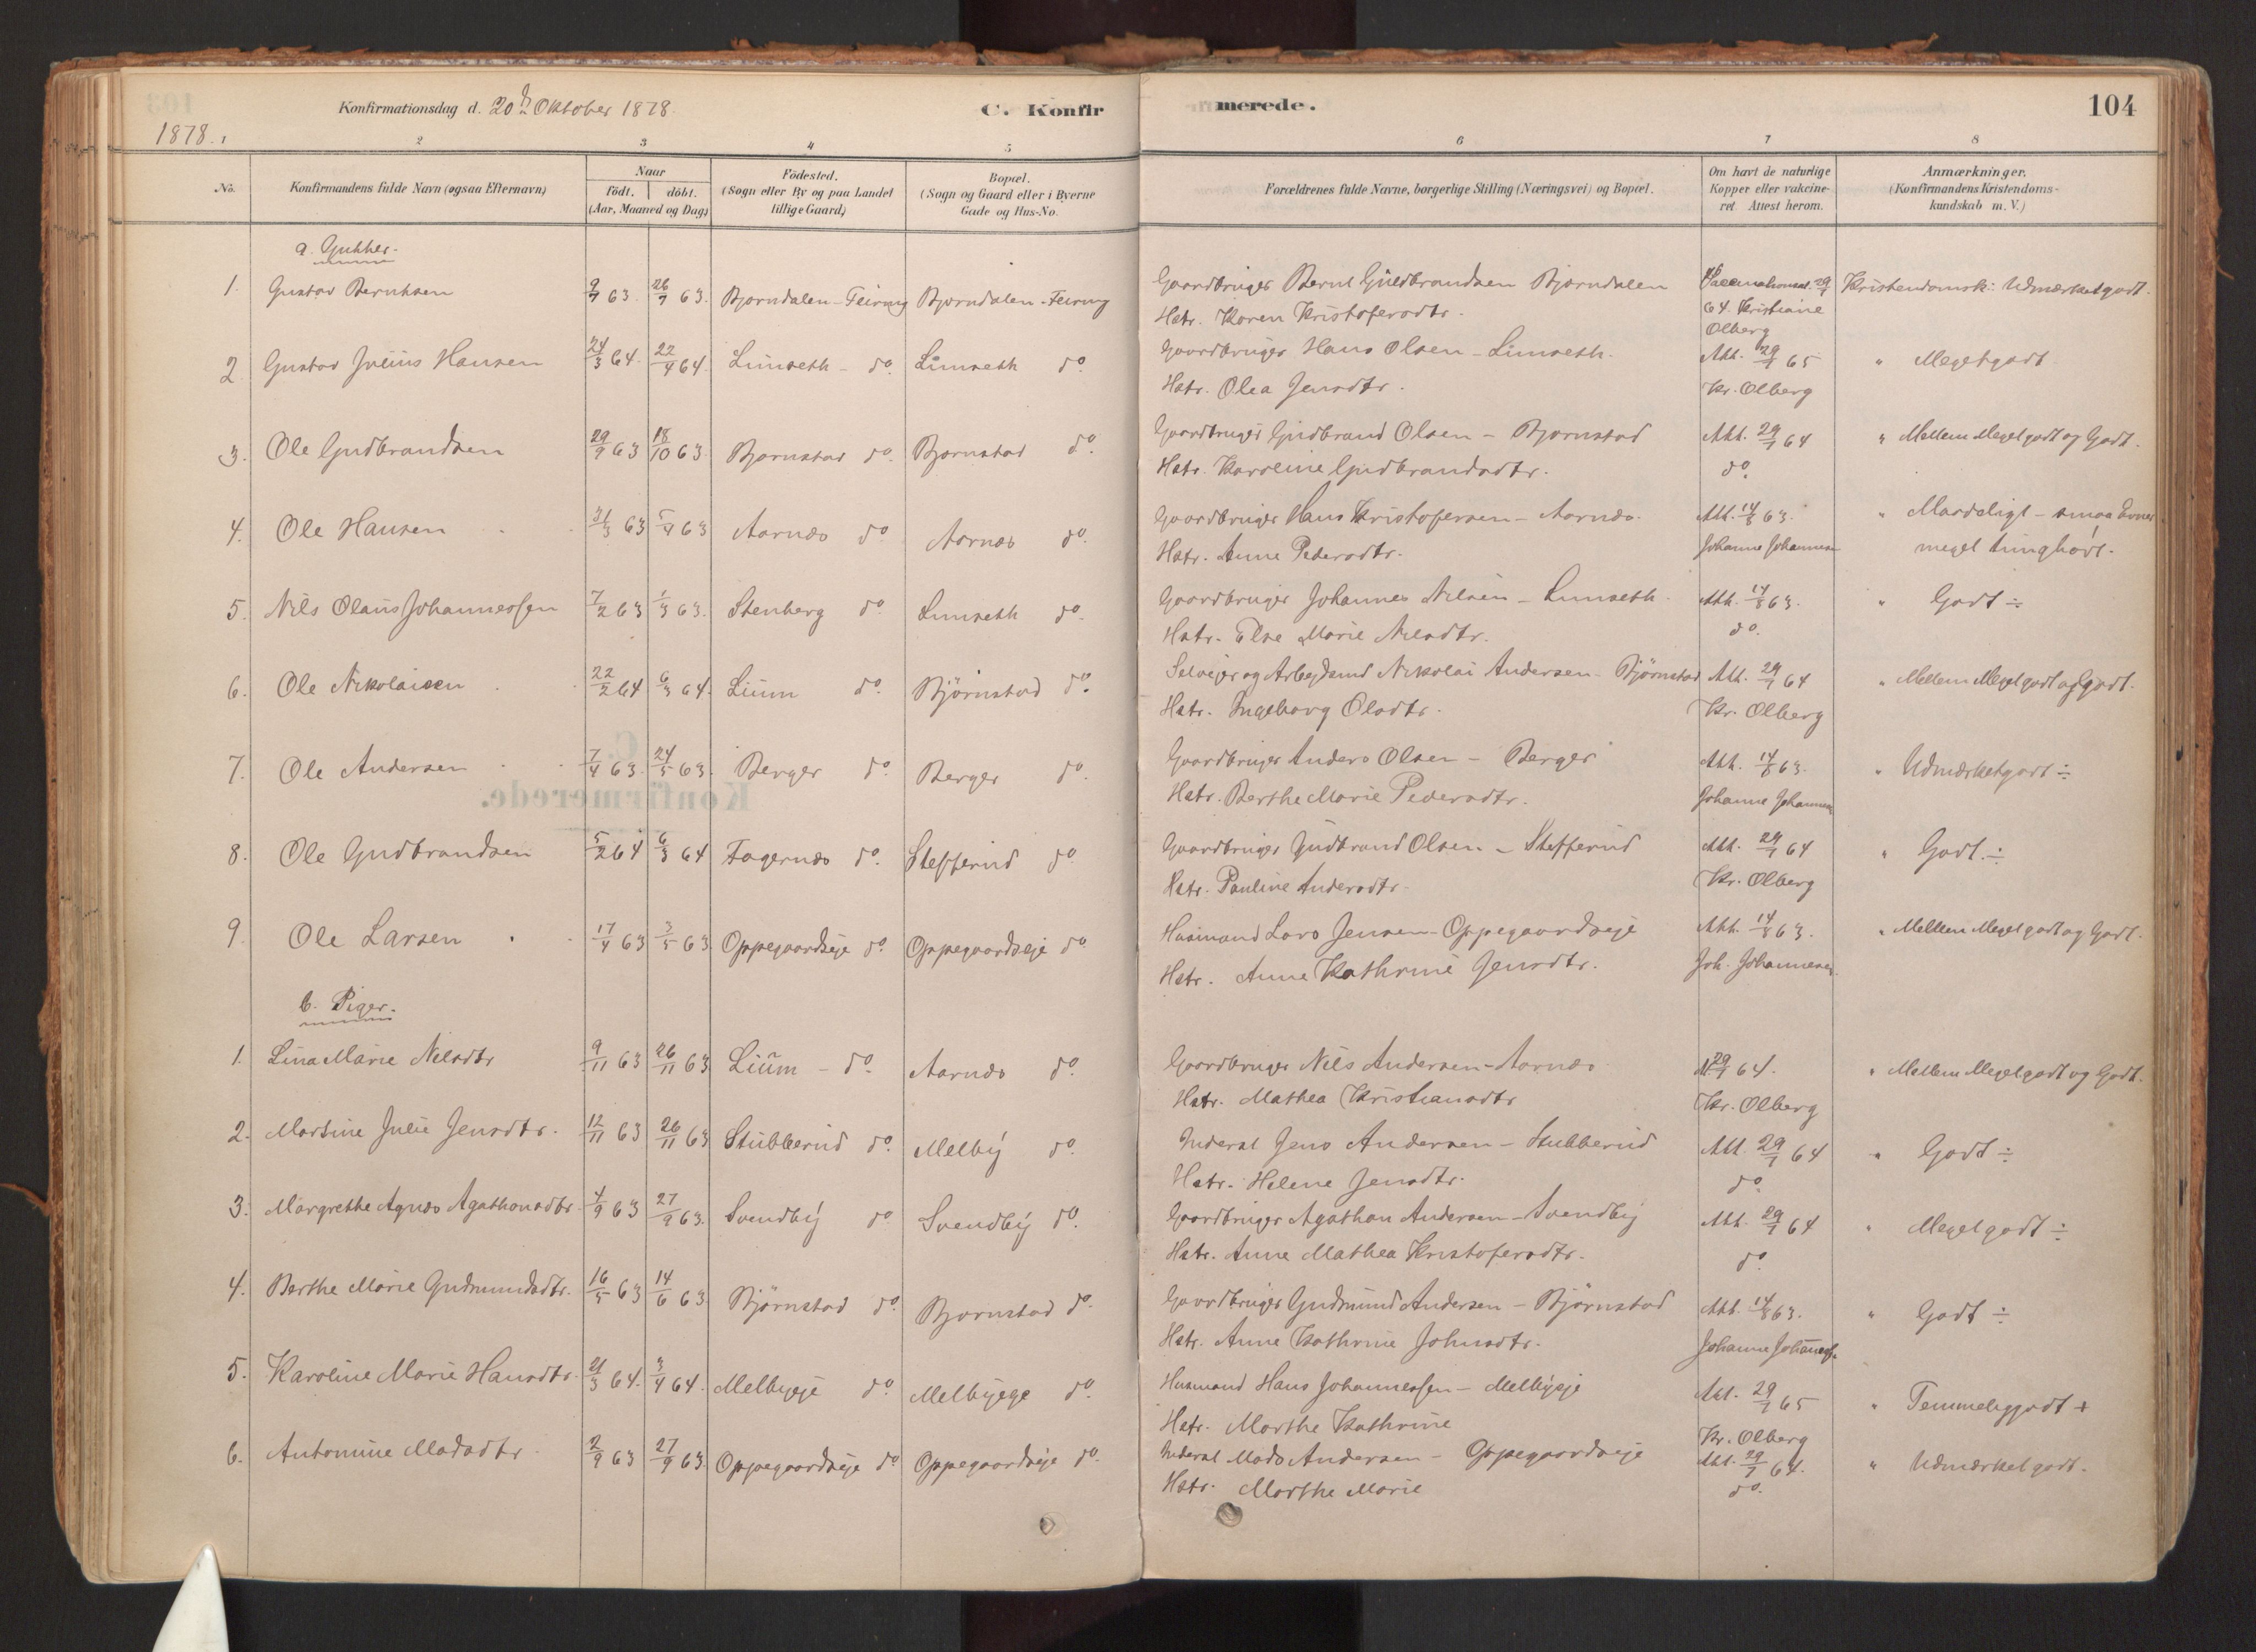 Konfirmationsdag d. 20de Oktober 1878. C. Konfirmerede. 104
1878.
1 2 3 4 5 6 7 8
No. Konfirmandens fulde Navn (ogsaa Efternavn) Naar födt. döbt. (Aar, Maaned og Dag) Födested. (Sogn eller By og paa Landet tillige Gaard) Bopæl. (Sogn og Gaard eller i Byerne Gade og Hus-No. Forældrenes fulde Navne, borgerlige Stilling (Næringsvei) og Bopæl. Om havt de naturlige Kopper eller vaksineret. Attest herom. Anmærkninger. (Konfirmandens Kristendomskundskab m. V.)
a. Gutter.
1. Gustav Berntsen 9/7 63. 26/7 63. Bjørndalen-Feiring Bjørndalen-Feiring Gaardbruger Bernt Guldbrandsen Bjørndalen 29/7 Kristendomsk: Udmærketgodt.
Hstr. Karen Kristofersdtr. 64. Kristiane
Olberg
2. Gustav Julius Hansen 24/3 64. 22/4 64. Limseth - do. Limseth do. Gaardbruger Hans Olsen - Limseth. Att. 29/7 65 " Megetgodt.
Hstr. Olea Jensdtr. Kr. Olberg
3. Ole Gudbrandsen 29/9 63 18/10 63. Bjørnstad do. Bjørnstad do. Gaardbruger Gudbrand Olsen - Bjørnstad Att. 29/7 64 " Mellem Megetgodt og Godt.
Hstr. Karoline Gudbrandsdtr. do.
4. Ole Hansen 31/3 63 5/4 63 Aarnæs do. Aarnæs do. Gaardbruger Hans Kristofersen - Aarnæs. Att. 14/8 63. " Maadeligt - smaa Evner
Hstr. Anne Pedersdtr. Johanne Johannesen meget tunghørt.
5. Nils Olaus Johannessen 7/2 63 1/3 63. Stenberg do. Limseth do. Gaardbruger Johannes Nilsen - Limseth. Att. 14/8 63. " Godt ÷
Hstr. Else Marie Nilsdtr. do.
6. Ole Nikolaisen 22/2 64 6/3 64. Lium do. Bjørnstad do. Selvejer og Arbejdsmd Nikolai Andersen - Bjørnstad Att. 29/7 64 " Mellem Megetgodt og godt.
Hstr. Ingeborg Olsdtr. Kr. Olberg
7. Ole Andersen 7/4 63. 24/5 63. Berger do. Berger do. Gaardbruger Anders Olsen - Berger Att. 14/8 63. " Udmærketgodt ÷
Hstr. Berthe Marie Pedersdtr. Johanne Johannesen
8. Ole Gudbrandsen 5/2 64 6/3 64 Fagernæs do. Stefferud do. Gaardbruger Gudbrand Olsen - Stefferud Att. 29/7 64 " Godt. ÷
Hstr. Pauline Andersdtr. Kr. Olberg
9. Ole Larsen 17/4 63 3/5 63 Oppegaardseje do. Oppegaardseje do. Husmand Lars Jensen - Oppegaardseje Att. 14/8 63. " Mellem Megetgodt og Godt.
Hstr. Anne Kathrine Jensdtr. Joh. Johannesen.
b. Piger.
1. Lina Marie Nilsdtr 9/11 63 26/11 63 Lium - do. Aarnæs do. Gaardbruger Nils Andersen - Aarnæs 29/7 64. " Mellem Megetgodt og Godt.
Hstr. Mathea Kristiansdtr Kr. Olberg
2. Martine Julie Jensdtr. 12/11 63 26/11 63 Stubberud do. Melby do. Inderst Jens Andersen - Stubberud Att 29/7 64 " Godt ÷
Hstr. Helene Jensdtr. do.
3. Margrethe Agnæs Agathonsdtr. 4/9 63 27/9 63. Svendby do Svendby do. Gaardbruger Agathon Andersen - Svendby Att. 29/7 64 " Megetgodt ÷
Hstr. Anne Mathea Kristofersdtr. do.
4. Berthe Marie Gudmundsdtr. 16/5 63 14/6 63. Bjørnstad do. Bjørnstad do. Gaardbruger Gudmund Andersen - Bjørnstad Att. 14/8 63. " Godt ÷
Hstr. Anne Kathrine Johnsdtr. Johanne Johannessen
5. Karoline Marie Hansdtr. 21/3 64. 3/4 64. Melbyeje do. Melbyeje do. Husmand Hans Johannessen - Melbyeje Att. 29/7 65 " Temmeliggodt +
Hstr. Marthe Kathrine Kr. Olberg
6. Antomine Madsdtr. 2/9 63 27/9 63. Oppegaardseje do Oppegaardseje do. Inderst Mads Andersen - Oppegaardseje Att. 29/7 64. " Udmærketgodt.
Hstr. Marthe Marie do.